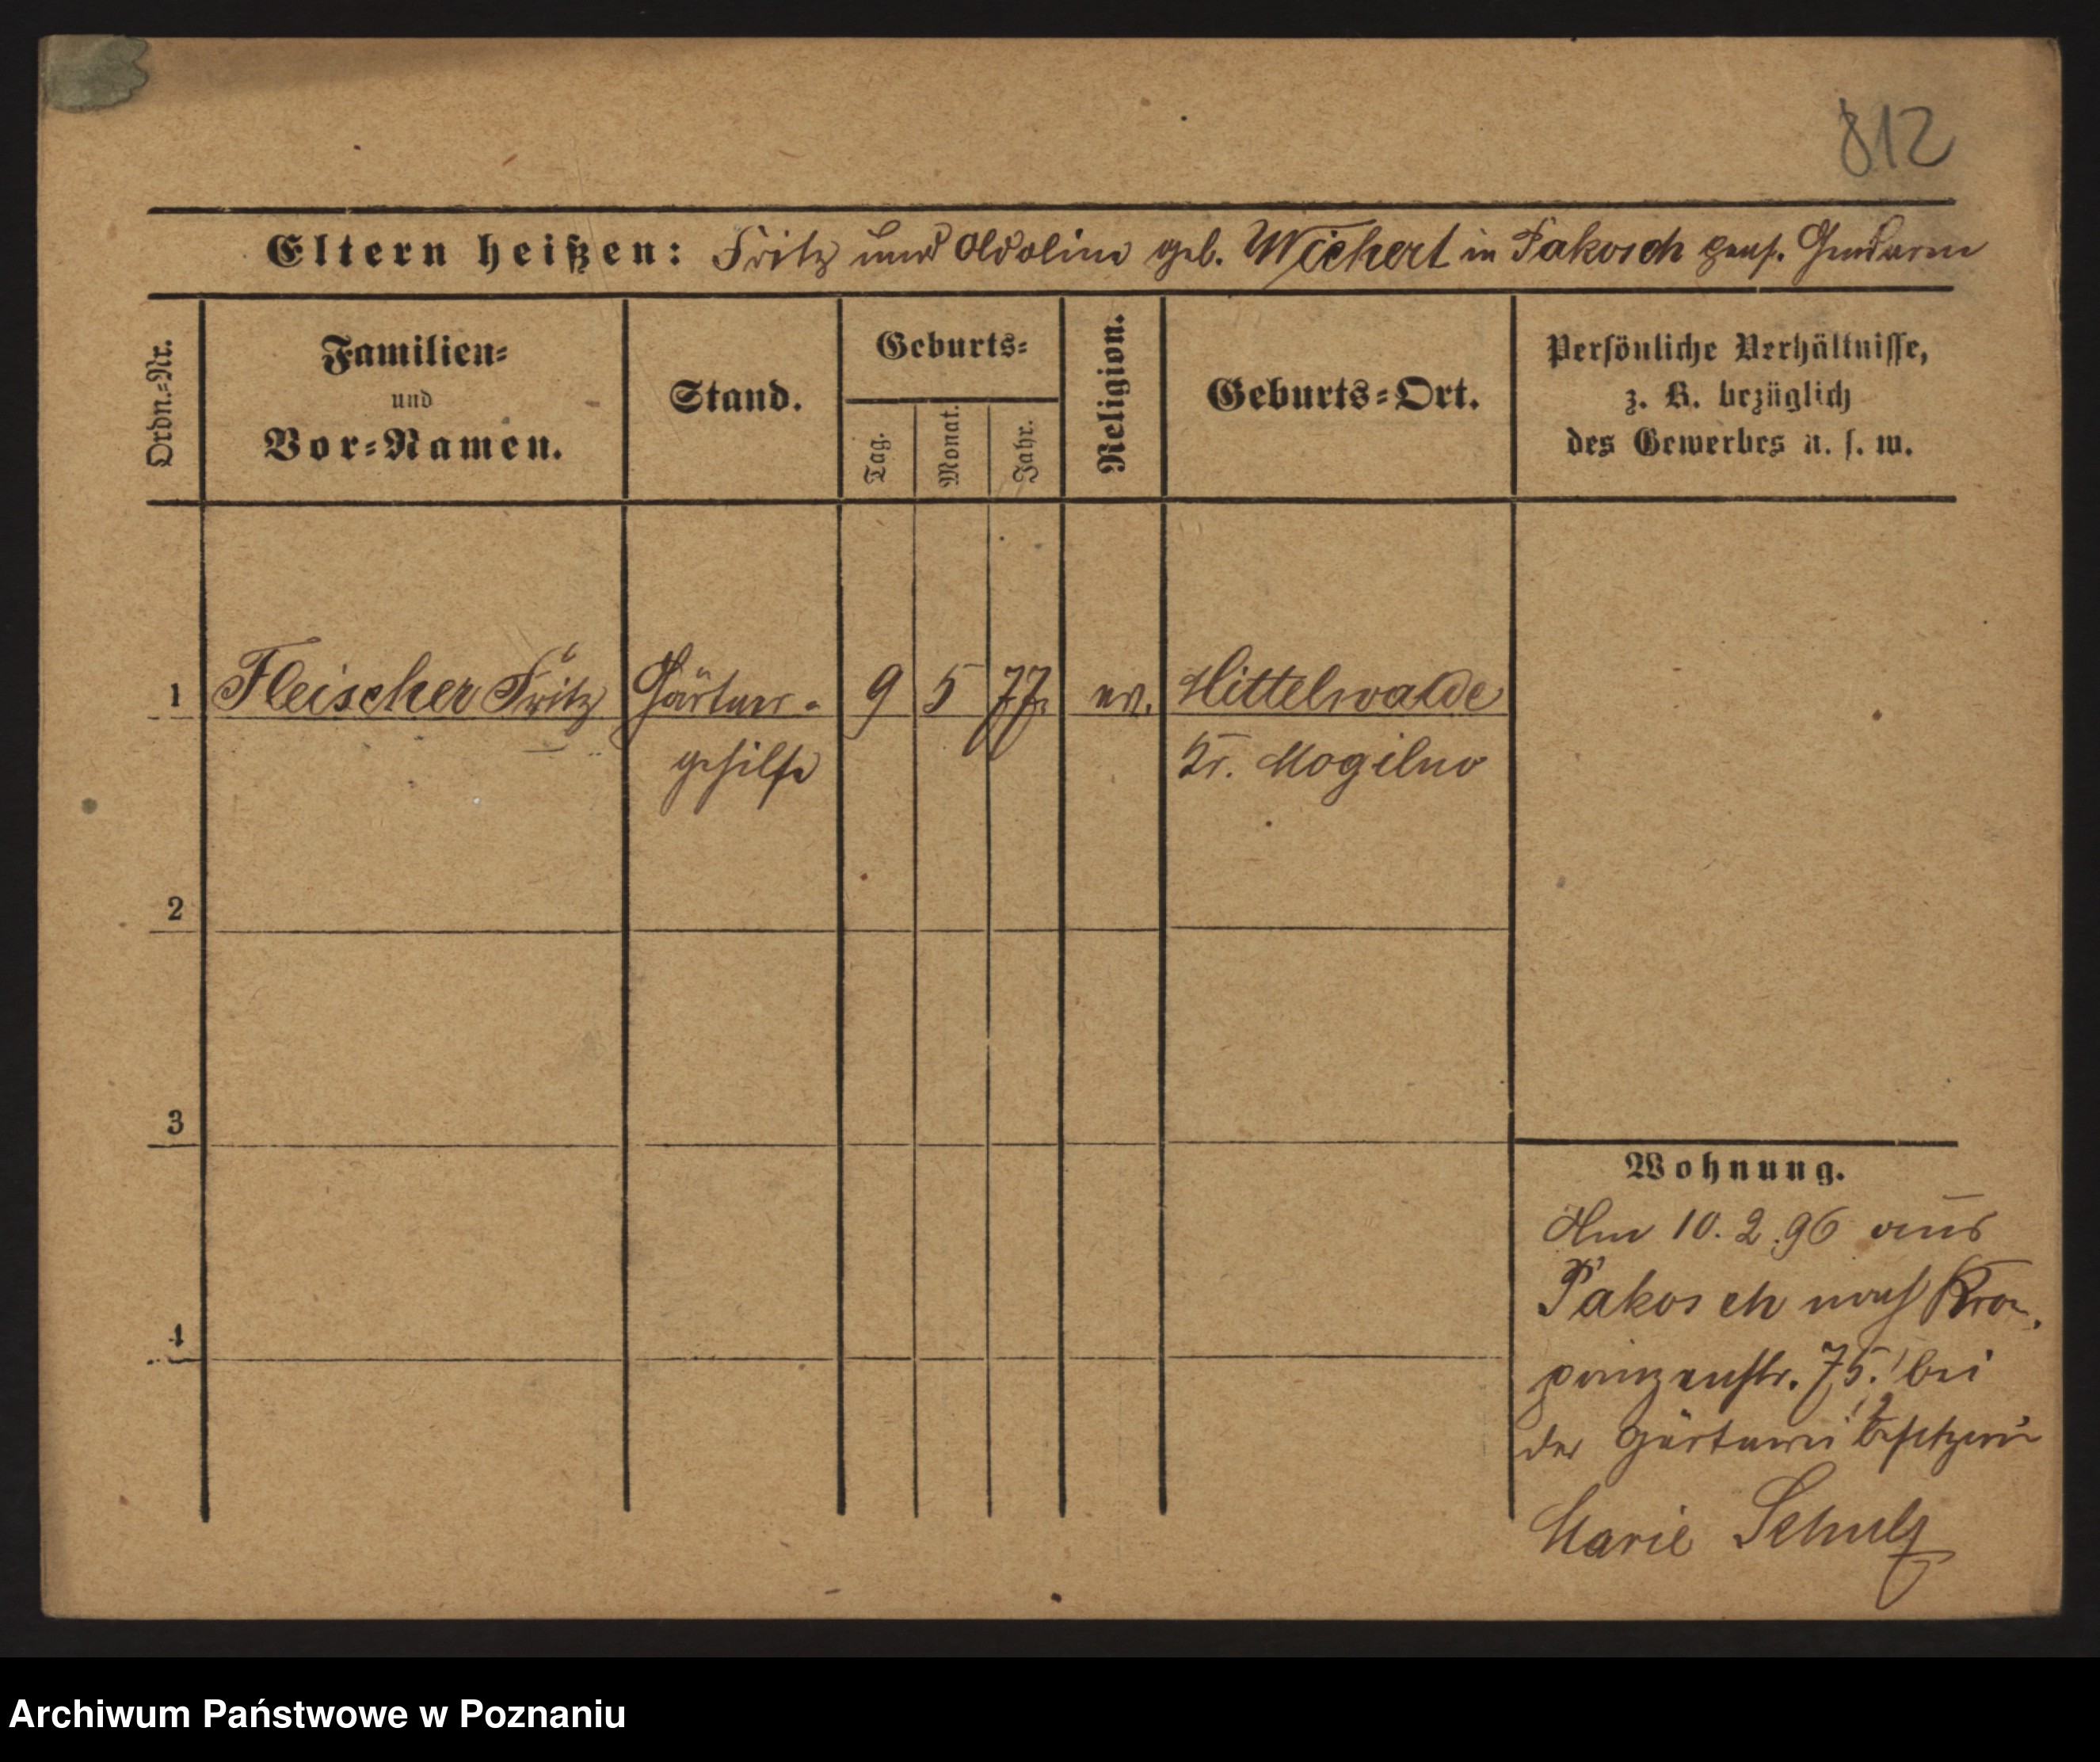 812
Eltern heißen: Fritz und Adoline geb. Wichert in Pakosch pens. Gendarm
Ordn.-Nr.
Familien-
und
Vor-Namen.
Stand.
Geburts-
Tag.
Monat.
Jahr.
Religion.
Geburts-Ort.
Persönliche Verhältnisse,
z. B. bezüglich
des Gewerbes u. s. w.
1 Fleischer Fritz Gärtner- 9 5 77. ev. Mittelwalde
gehilfe Kr. Mogilno
2
3
4
Wohnung.
Am 10. 2. 96 aus
Pakosch nach Kron-
prinzenstr. 75. bei
der Gärtnerei besitzerin
Marie Schulz
Archiwum Państwowe w Poznaniu